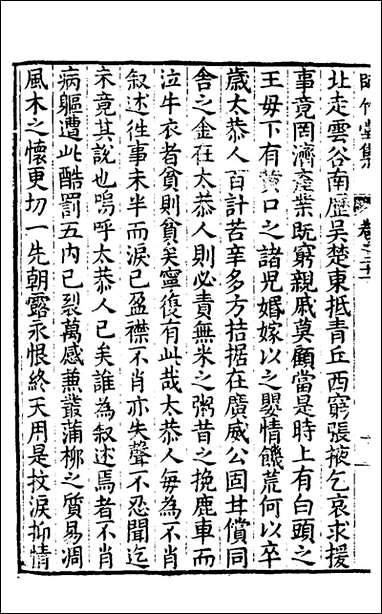 卧竹堂集
卷之二十一
北走雲谷南歷吳楚東抵青丘西窮張掖乞哀求援
事竟罔濟產業既窮親戚莫顧當是時上有白頭之
王母下有黃口之諸兒婚嫁以之嬰情饑荒何以卒
歲太恭人百計苦辛多方拮据在廣威公固甘償同
舍之金在太恭人則必責無米之粥昔之挽鹿車而
泣牛衣者貧則貧矣寧復有此哉太恭人每為不肖
叙述徃事未半而淚已盈襟不肖亦失聲不忍聞迄
未竟其說也嗚呼太恭人已矣誰為叙述焉者不肖
病軀遭此酷罰五內已裂萬感蕉叢蒲柳之質易凋
風木之懷更切一先朝露永恨終天用是抆淚抑情